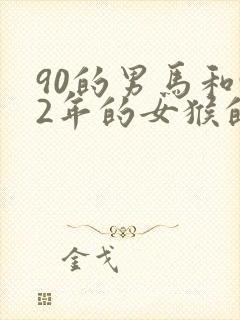 90的男馬和
2年的女猴的
金戈